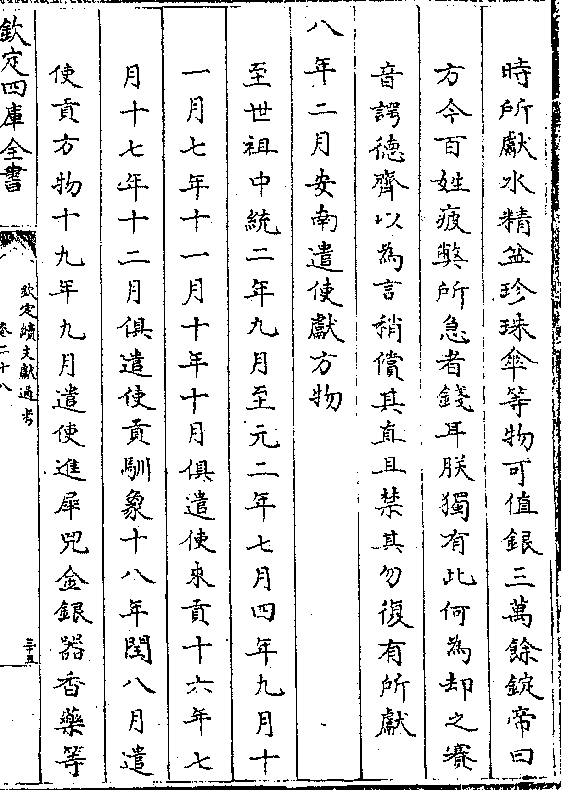 時所獻水精盆珍珠傘等物可值銀三萬餘錠帝曰
方今百姓疲弊所急者錢耳朕獨有此何為却之賽
音諤德齊以為言稍償其直且禁其勿復有所獻
八年二月安南遣使獻方物
至世祖中統二年九月至元二年七月四年九月十
一月七年十一月十年十月俱遣使來貢十六年七
月十七年十二月俱遣使貢馴象十八年閏八月遣
使貢方物十九年九月遣使進犀兕金銀器香藥等
欽定四庫全書
欽定續文獻通考
卷二十八
三十五